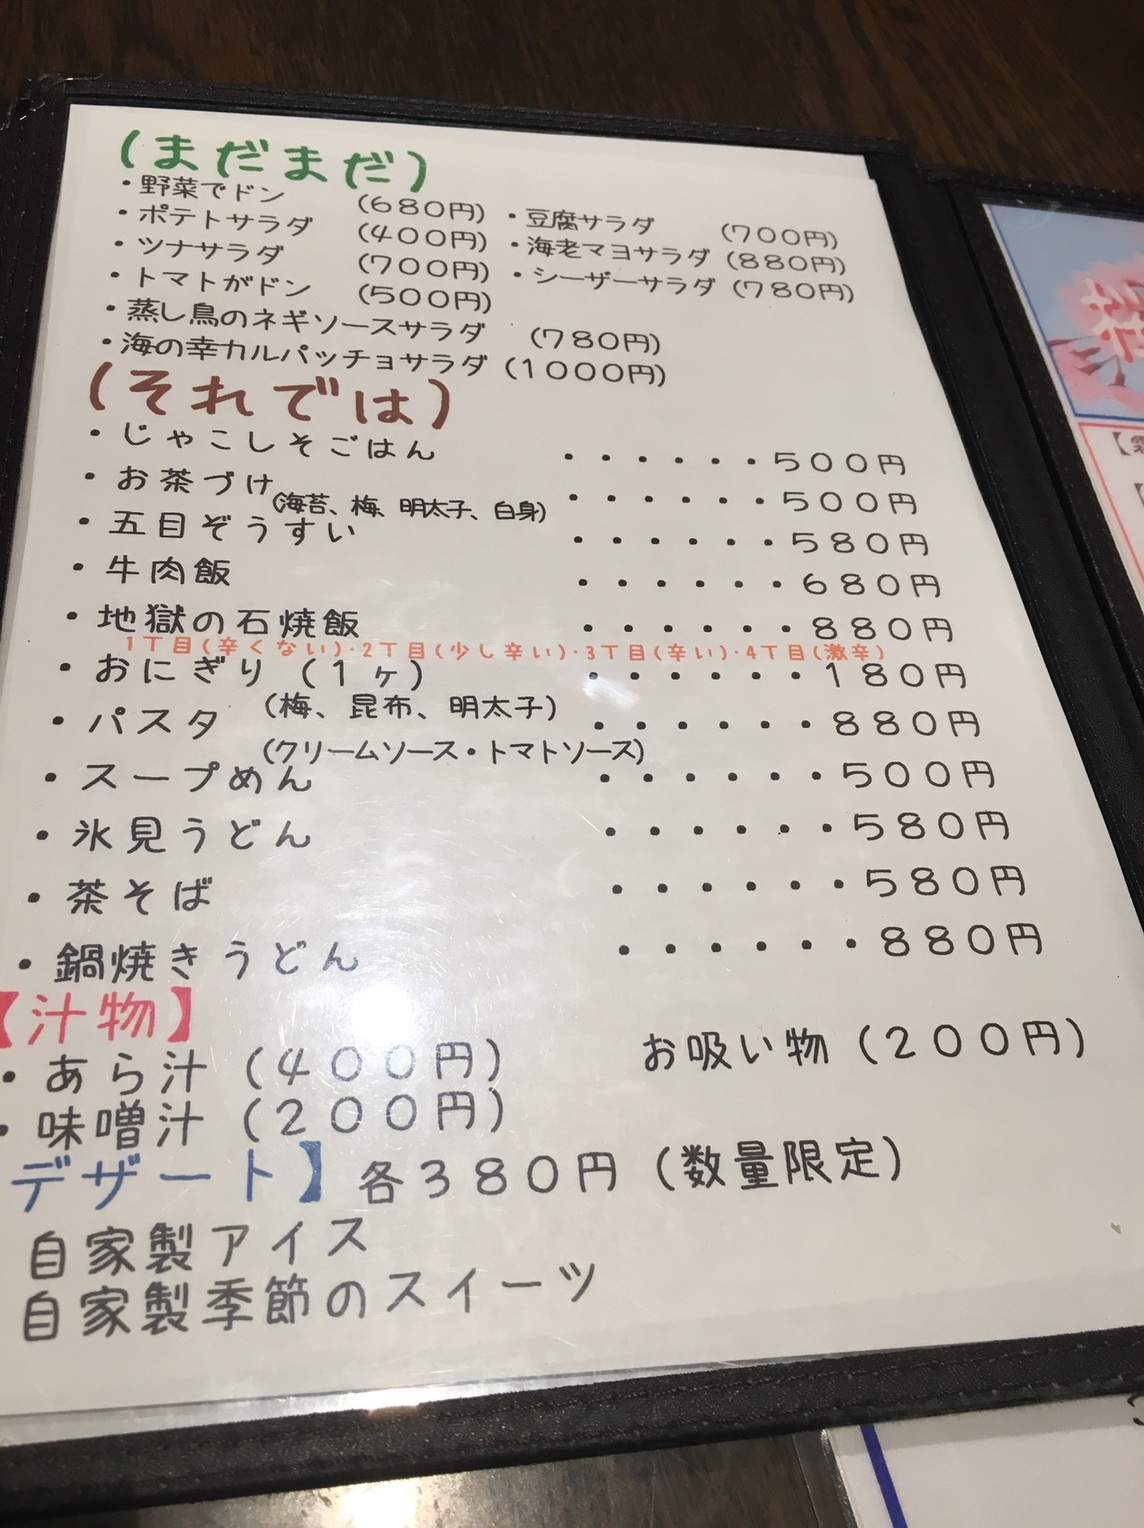 (まだまだ)
・野菜でドン (680円) ・豆腐サラダ (700円)
・ポテトサラダ (400円) ・海老マヨサラダ (880円)
・ツナサラダ (700円) ・シーザーサラダ (780円)
・トマトがドン (500円)
・蒸し鳥のネギソースサラダ (780円)
・海の幸カルパッチョサラダ (1000円)
(それでは)
・じゃこしそごはん ・・・・・・500円
・お茶づけ ・・・・・・500円
(海苔、梅、明太子、白身)
・五目ぞうすい ・・・・・・580円
・牛肉飯 ・・・・・・680円
・地獄の石焼飯 ・・・・・・880円
1丁目(辛くない)・2丁目(少し辛い)・3丁目(辛い)・4丁目(激辛)
・おにぎり (1ヶ) ・・・・・・180円
(梅、昆布、明太子)
・パスタ ・・・・・・880円
(クリームソース・トマトソース)
・スープめん ・・・・・・500円
・氷見うどん ・・・・・・580円
・茶そば ・・・・・・580円
・鍋焼きうどん ・・・・・・880円
【汁物】
・あら汁 (400円) お吸い物 (200円)
・味噌汁 (200円)
デザート】各380円 (数量限定)
自家製アイス
自家製季節のスイーツ